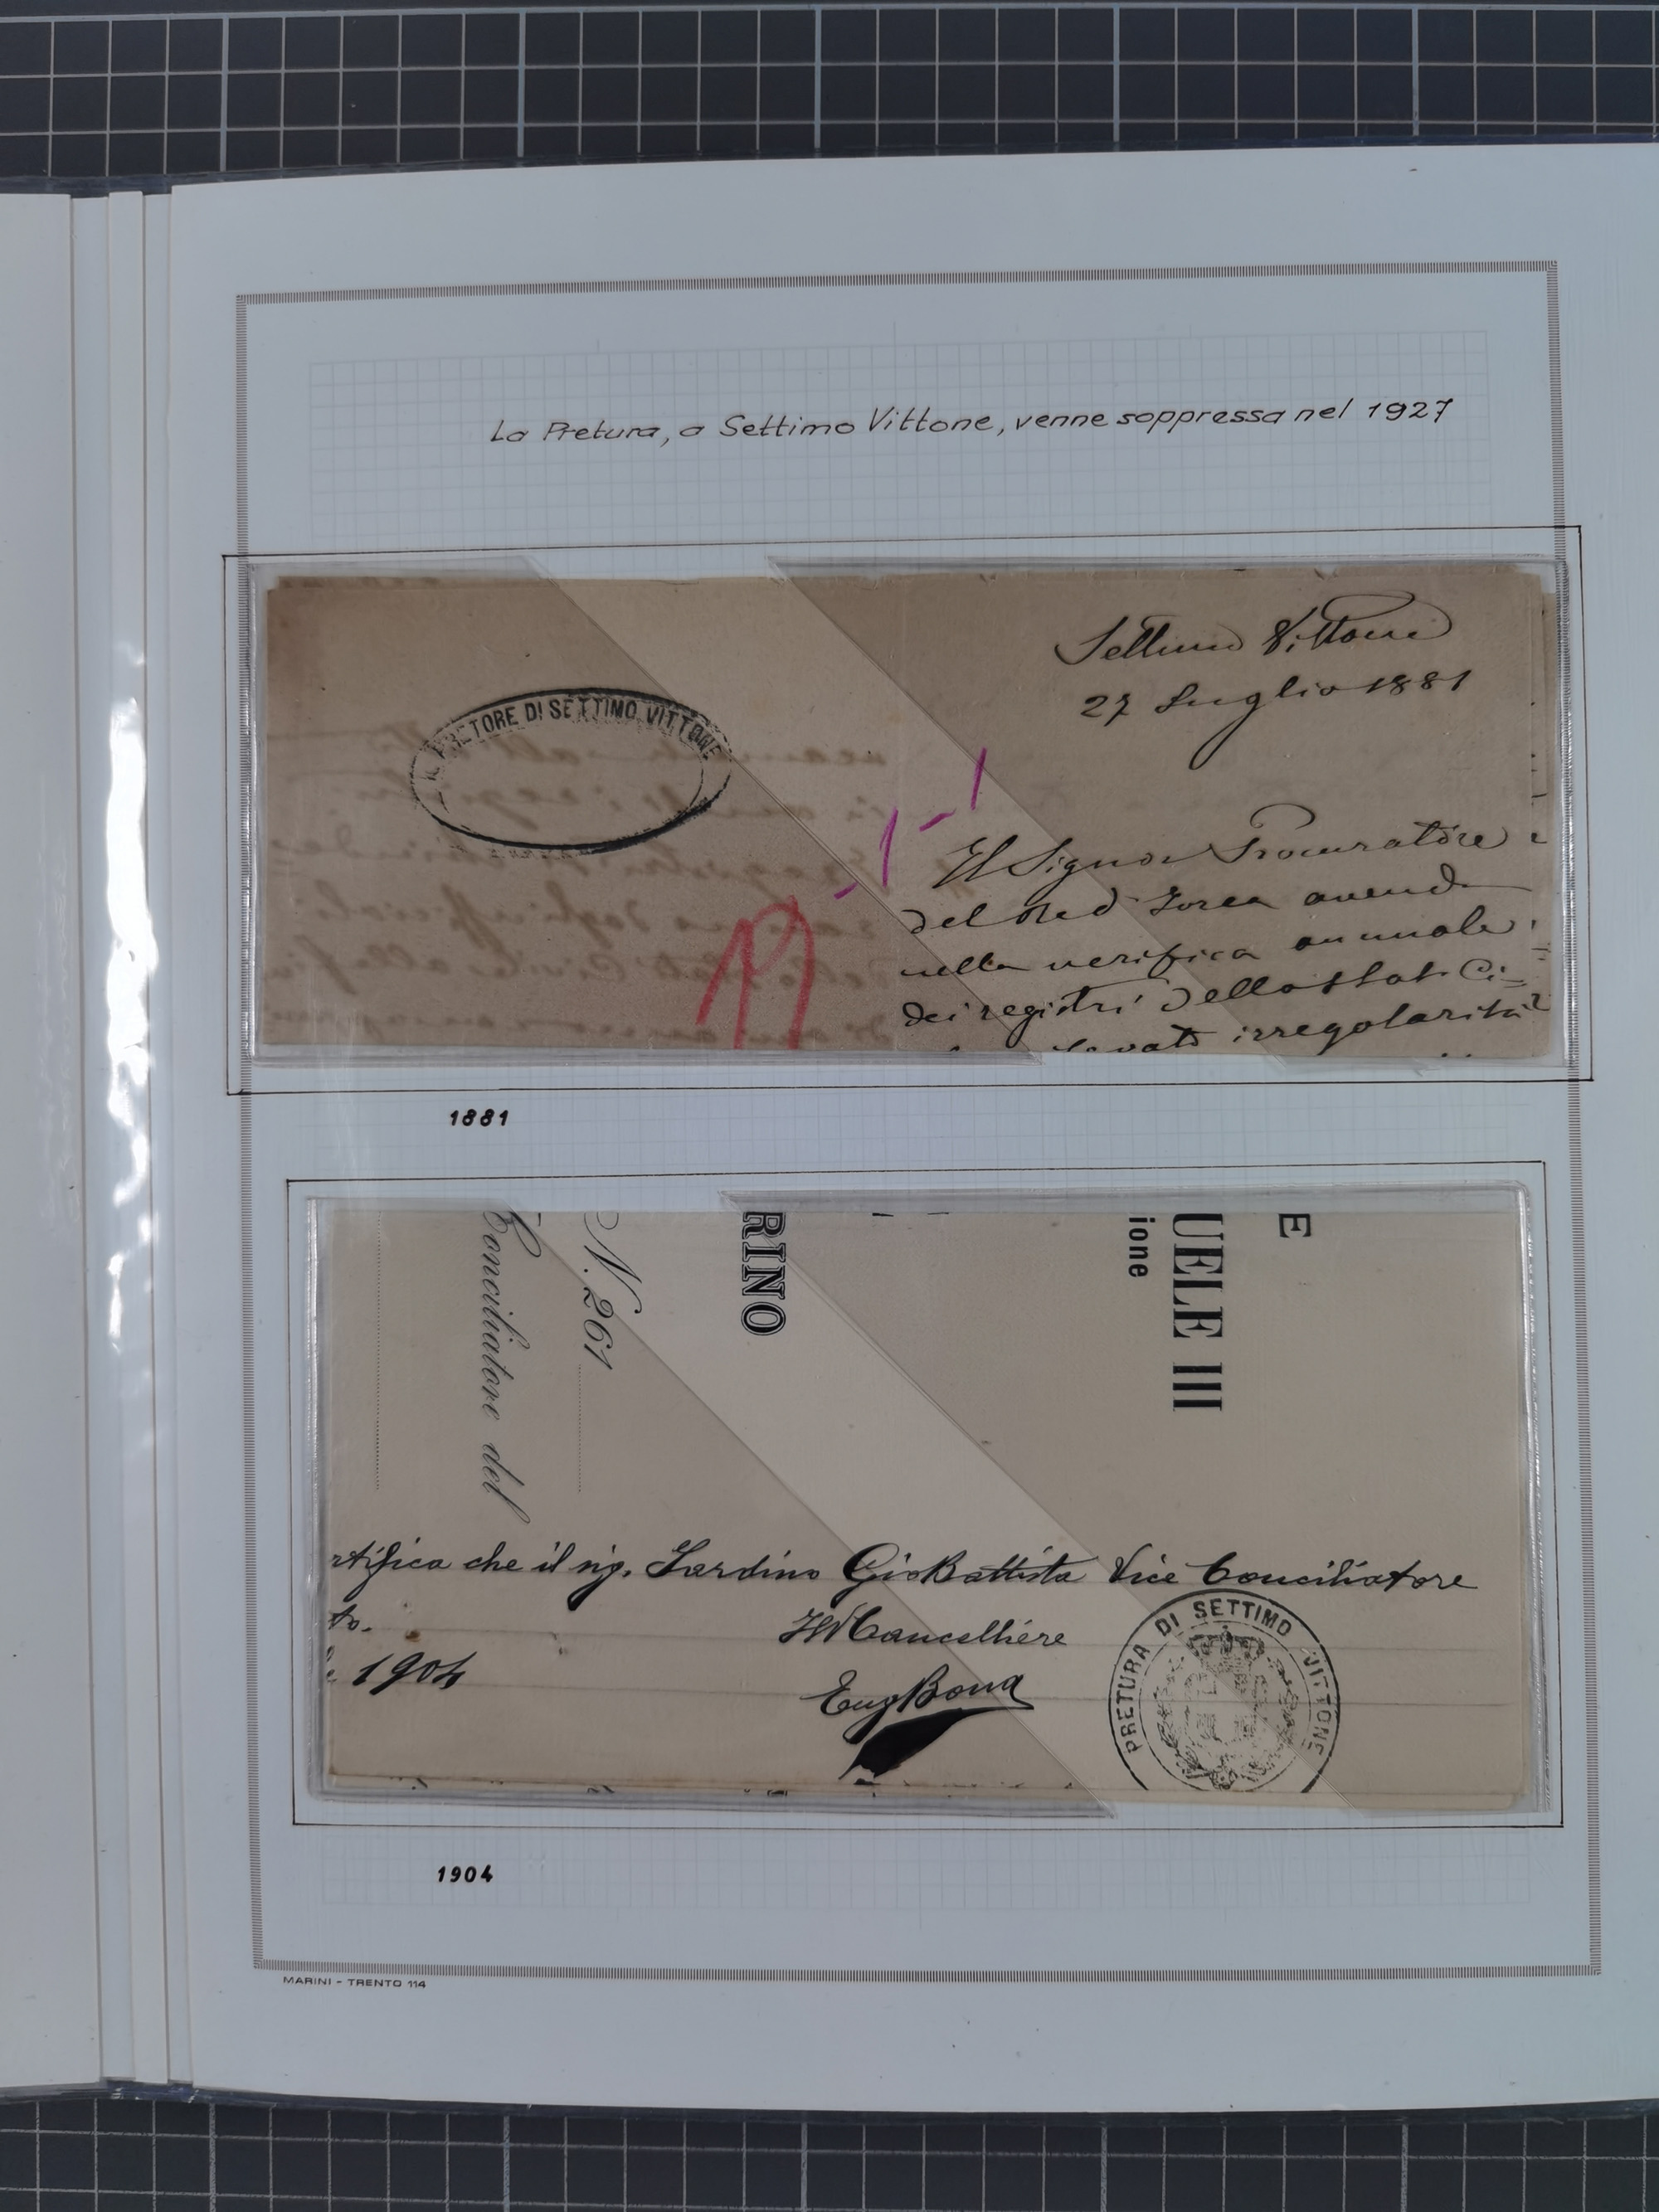 La Pretura, a Settimo Vittone, venne soppressa nel 1927
IL PRETORE DI SETTIMO VITTONE
Settimo Vittone
27 Luglio 1881
1-1
Il Signor Procuratore
del Re d'Ivrea avendo
nella verifica annuale
dei registri dello stato Ci-
irregolarità
1881
E
UELE III
ione
RINO
N. 261
Conciliatore del
rtifica che il sig. Sardino Gio Battista Vice Conciliatore
to.
Il Cancelliere
1904
Eug Bona
PRETURA DI SETTIMO VITTONE
1904
MARINI - TRENTO 114